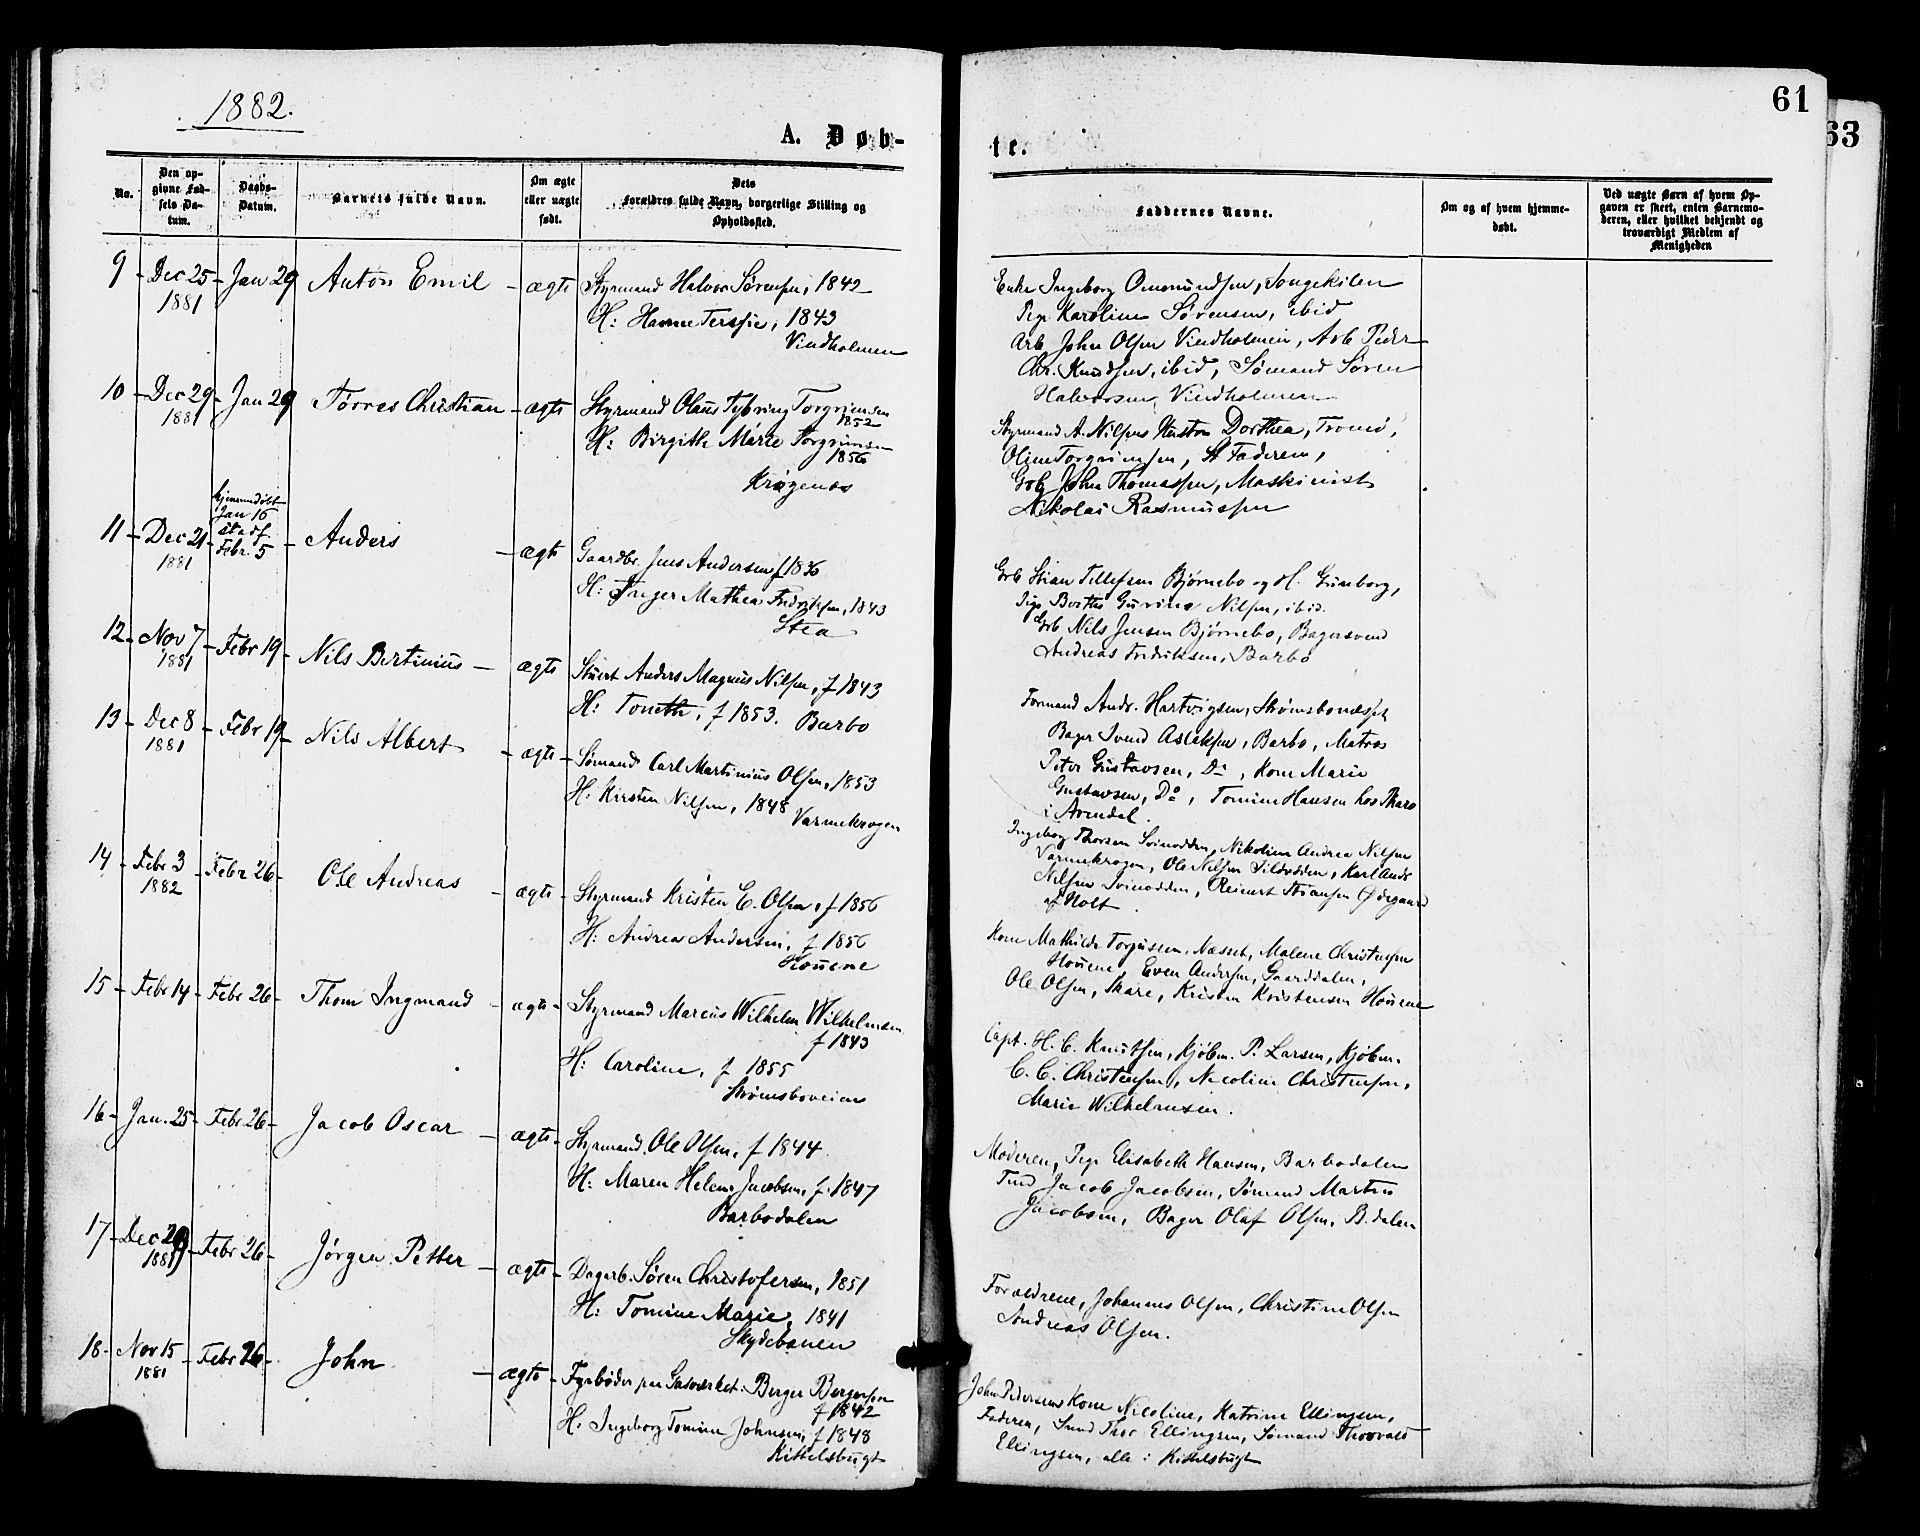 1882.
A. Døb-
te.
61
63
No.
Den op-
givne Fød-
sels Da-
tum.
Daabs-
Datum.
Barnets fulde Navn.
Om ægte
eller uægte
født.
Dets
Forældres fulde Navn, borgerlige Stilling og
Opholdssted.
Faddernes Navne.
Om og af hvem hjemme-
døbt.
Ved uægte Barn af hvem Op-
gaven er skeet, enten Barnemo-
deren, eller hvilket bekjendt og
troværdigt Medlem af
Menigheden
9 - Dec 25 - Jan 29 Anton Emil - ægte Styrmand Halvor Sørensen, 1842
1881
H: Hanne Terssie, 1843
Vindholmen
Enke Ingeborg Omomundsen, Songekilen
Pige Karoline Sørensen, ibid
Arb. John Olsen Vindholmen, Arb Peder
Chr. Knudsen, ibid, Sømand Søren
Halvorsen, Vindholmen
10 - Dec 29 - Jan 29 Tørres Christian - ægte Styrmand Olaus Tybring Torgrimsen
1881
1852
H: Birgith Marie Torgrimsen
1856
Krøgenes
Styrmand A. Nilsens Hustru Dorthea, Tromø,
Oline Torgrimsen, St Faderen,
Grb John Thomassen, Maskinist
Nikolai Rasmussen
11 - Dec 21 - hjemmedøbt
Jan 16
stadf.
Febr. 5 - Anders - ægte Gaardbr. Jens Andersen f 1836
1881
H: Inger Mathea Fredriksen, 1843
Stea
Grb Stian Tellefsen Bjørnebo og H. Gunborg,
Pige Berthe Gurine Nilsen, ibid.
Grb Nils Jensen Bjørnebo, Bagersvend
Andreas Fredriksen, Barbo
12 - Nov 7 - Febr 19 - Nils Bertinius - ægte Stuert Anders Magnus Nilsen, f 1843
1881
H: Tometh, f 1853. Barbo
Formand Andr. Hartvigsen, Strømsbonæsset
Bager Svend Aslaksen, Barbo, Matros
Peter Gustavsen, Do, Kone Marie
Gustavsen, Do, Tomine Hansen hos Skare
i Arendal.
13 - Dec 8 - Febr 19 - Nils Albert - ægte - Sømand Carl Martinius Olsen, 1853
1881
H: Kirsten Nilsen, 1848
Varmekrogen
Ingeborg Thorsen Svinodden, Nikoline Andrea Nilsen
Varmekrogen, Ole Nilsen Sildodden, Karl Andr
Nilsen Svinodden, Reinert Stiansen Ødegaard
af Holt
14 - Febr 3 - Febr 26 - Ole Andreas - ægte - Styrmand Kristen E. Olsen, f 1856
1882
H: Andrea Andersen, f 1856
Houene
Kone Mathilde Torjussen, Næsset, Malene Christensen
Houene, Even Andersen, Gaarddalen,
Ole Olsen, Skare, Kristen Kristensen Houene
15 - Febr 14 - Febr 26 - Thom Ingmand - ægte - Styrmand Marcus Wilhelm Wilhelmsen
f 1843
H: Caroline, f 1855
Strømsboveien
Capt. H. C. Knutsen, Kjøbm. P. Larsen, Kjøbm.
C. C. Christensen, Nicoline Christensen,
Marie Wilhelmsen.
16 - Jan. 25 - Febr 26 - Jacob Oscar - ægte - Styrmand Ole Olsen, f 1844.
H: Maren Helene Jacobsen, f. 1847
Barbodalen
Moderen, Pige Elisabeth Hansen, Barbodalen
Tmd Jacob Jacobsen, Sømand Martin
Jacobsen, Bager Olaf Olsen, B.dalen
17 - Dec 29 - Febr 26 - Jørgen Petter - ægte - Dagarb. Søren Christofersen, 1851
1881
H: Tomine Marie, 1841
Skydebanen
Forældrene, Johannes Olsen, Christine Olsen
Andreas Olsen.
18 - Nov 15 - Febr 26 - John - ægte - Fyrbøder paa Gasværket Berger Bergersen
1881
f 1842
H: Ingeborg Tomine Johnsen, f 1848
Kittelsbugt
John Pedersens Kone Nicoline, Katrine Ellingsen,
Faderen, Smed Thor Ellingsen, Sømand Thorvald
Ellingsen, alle i Kittelsbugt